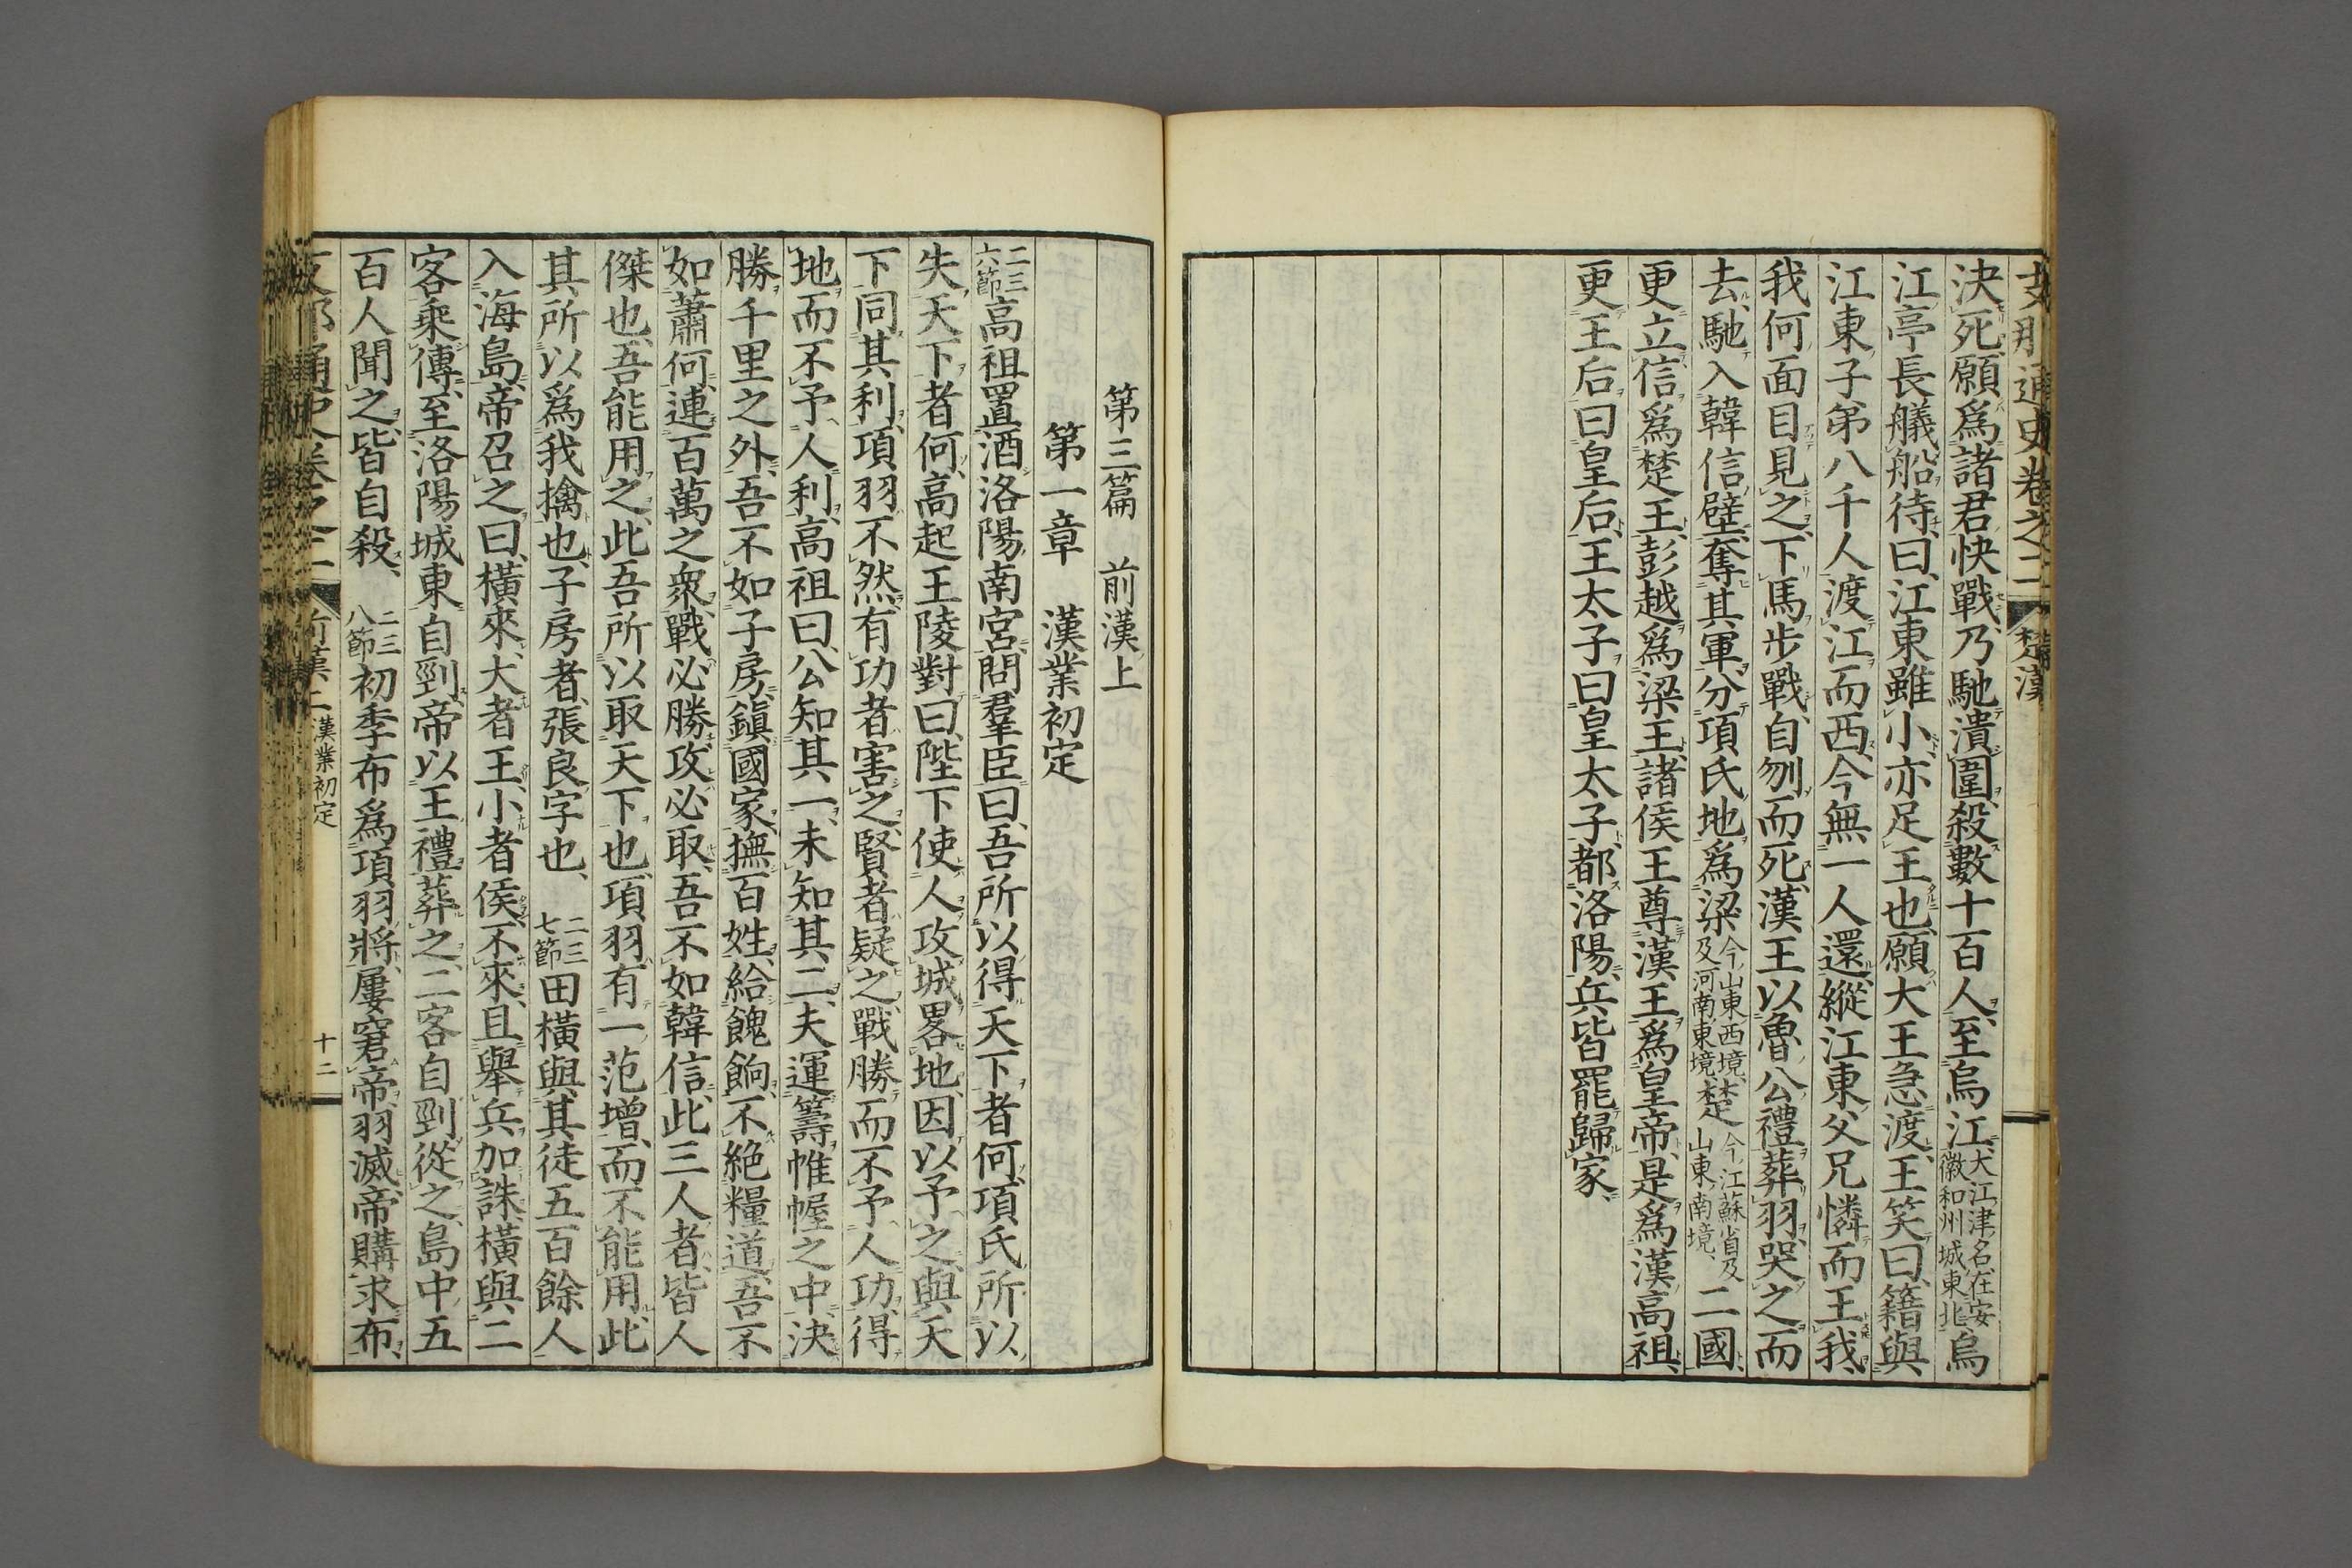 支那通史卷之二 楚漢
決死、願爲諸君快戰、乃馳潰圍、殺數十百人、至烏江、大江津名、在安徽和州城東北、烏
江亭長艤船待、曰、江東雖小、亦足王也、願大王急渡、王笑曰、籍與
江東子弟八千人渡江而西、今無一人還、縱江東父兄憐而王我、
我何面目見之、下馬步戰、自刎而死、漢王以魯公禮葬羽、哭之而
去、馳入韓信壁、奪其軍、分項氏地、爲梁今山東西境、及河南東境、楚今江蘇省及山東南境、二國、
更立信爲楚王、彭越爲梁王、諸侯王尊漢王爲皇帝、是爲漢高祖、
更王后曰皇后、王太子曰皇太子、都洛陽、兵皆罷歸家、
第三篇 前漢上
第一章 漢業初定
二三六節高祖置酒洛陽南宮、問羣臣曰、吾所以得天下者何、項氏所以
失天下者何、高起王陵對曰、陛下使人攻城畧地、因以予之、與天
下同其利、項羽不然、有功者害之、賢者疑之、戰勝而不予人功、得
地而不予人利、高祖曰、公知其一、未知其二、夫運籌帷幄之中、決
勝千里之外、吾不如子房、鎭國家、撫百姓、給餽餉、不絕糧道、吾不
如蕭何、連百萬之衆、戰必勝、攻必取、吾不如韓信、此三人者、皆人
傑也、吾能用之、此吾所以取天下也、項羽有一范增、而不能用、此
其所以爲我擒也、子房者、張良字也、 二三七節田橫與其徒五百餘人
入海島、帝召之曰、橫來、大者王、小者侯、不來、且舉兵加誅、橫與二
客乘傳、至洛陽城東自剄、帝以王禮葬之、二客自剄從之、島中五
百人聞之、皆自殺、 二三八節初季布爲項羽將、屢窘帝、羽滅、帝購求布、
支那通史卷之二 前漢上 漢業初定 十二